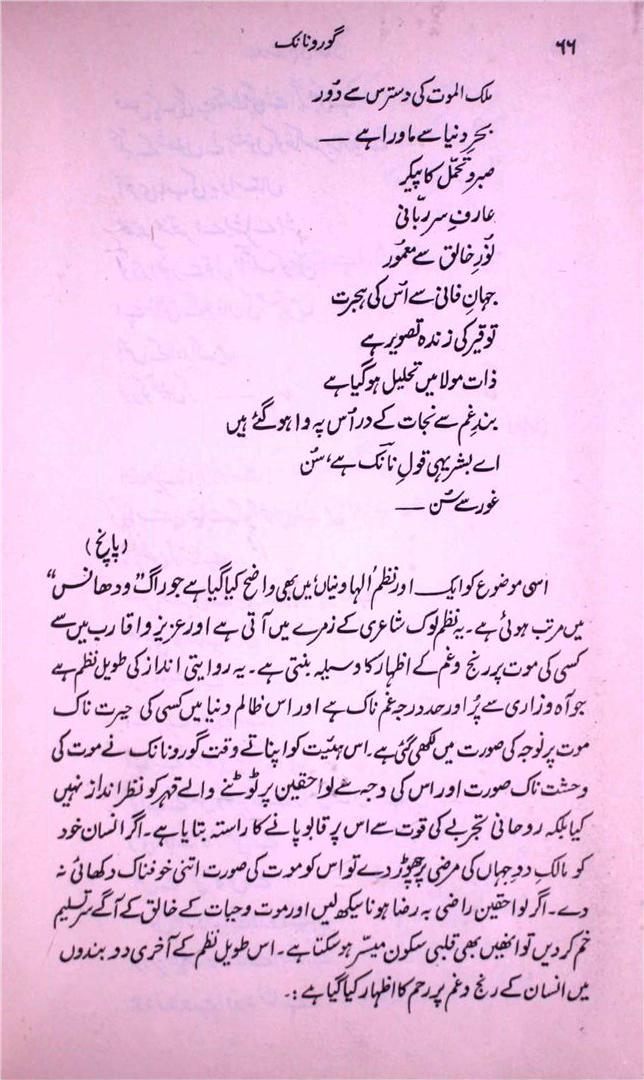 ۶۶
گورونانک
ملک الموت کی دسترس سے دُور
بحرِ دنیا سے ماورا ہے —
صبر و تحمّل کا پیکر
عارفِ سرِ ربّانی
نورِ خالق سے معمُور
جہانِ فانی سے اُس کی ہجرت
توقیر کی زندہ تصویر ہے
ذات مولا میں تحلیل ہو گیا ہے
بندِ غم سے نجات کے در اُس پہ وا ہو گئے ہیں
اے بشر یہی قولِ نانک ہے، سُن
غور سے سُن —
(پانچ)
اسی موضوع کو ایک اور نظم اُلہاونیاں میں بھی واضح کیا گیا ہے جو راگ "ودھانس"
میں مرتب ہوئی ہے۔ یہ نظم لوک شاعری کے زمرے میں آتی ہے اور عزیز و اقارب میں سے
کسی کی موت پر رنج و غم کے اظہار کا وسیلہ بنتی ہے۔ یہ روایتی انداز کی طویل نظم ہے
جو آہ و زاری سے پُر اور حد درجہ غم ناک ہے اور اس ظالم دنیا میں کسی کی حیرت ناک
موت پر نوحہ کی صورت میں لکھی گئی ہے۔ اس ہیئت کو اپناتے وقت گورو نانک نے موت کی
وحشت ناک صورت اور اس کی وجہ سے لواحقین پر ٹوٹنے والے قہر کو نظر انداز نہیں
کیا بلکہ روحانی تجربے کی قوت سے اس پر قابو پانے کا راستہ بتایا ہے۔ اگر انسان خود
کو مالکِ دو جہاں کی مرضی پر چھوڑ دے تو اس کو موت کی صورت اتنی خوفناک دکھائی نہ
دے۔ اگر لواحقین راضی بہ رضا ہونا سیکھ لیں اور موت و حیات کے خالق کے آگے سرِ تسلیم
خم کر دیں تو انھیں بھی قلبی سکون میسّر ہو سکتا ہے۔ اس طویل نظم کے آخری دو بندوں
میں انسان کے رنج و غم پر رحم کا اظہار کیا گیا ہے:۔